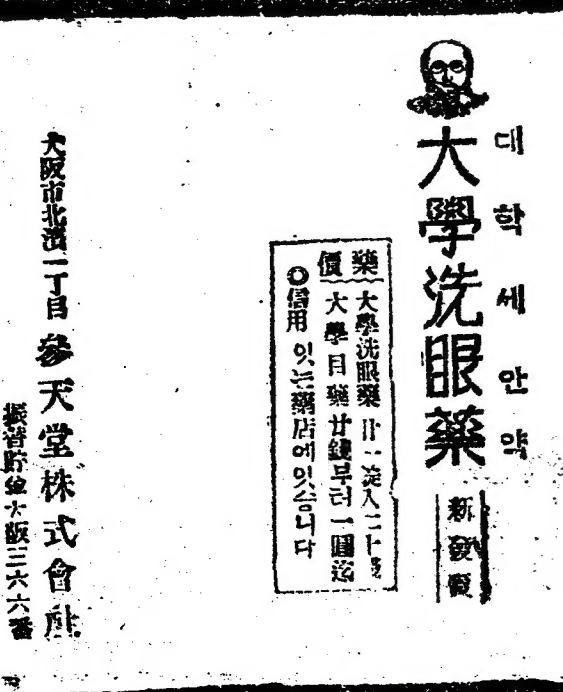 대학세안약
大學洗眼藥
新發賣
藥價
大學洗眼藥 廿一淀入二十錢
大學目藥 廿錢부터 一圓迄
◎信用 잇는 藥店에 잇슴니다
大阪市北濱一丁目 參天堂株式會社
振替貯金大阪三六六番